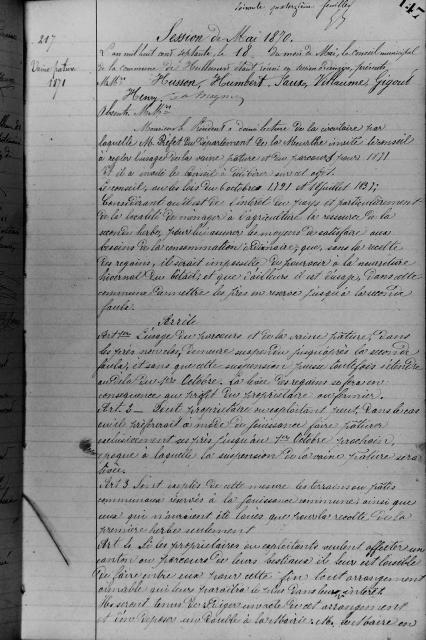 Soixante quatorzième feuillet
145
Session de Mai 1870.
217
L'an mil huit cent septante, le 18 du mois de Mai, le Conseil municipal
Vaine pature
1871
de la commune de étant réuni en session ordinaire, présents,
M.Mrs Husson, Humbert, Saux, Vuillaume, Gigout
Henry,
Absents M.Mrs
Monsieur le Président a donné lecture de la circulaire par
laquelle M. Préfet du Département de la Meurthe invite le conseil
à régler l'usage de la vaine pature et du parcours pour 1871
et il a invité le conseil à délibérer sur cet objet.
Le conseil, vu les lois du 6 octobre 1791 et 18 juillet 1837;
Considérant qu'il est de l'intérêt du pays et particulièrement
de la localité de ménager à l'agriculture la ressource de la
seconde herbe, pour lui assurer les moyens de satisfaire aux
besoins de la consommation ordinaire; que, sans la récolte
des regains, il serait impossible de pourvoir à la nourriture
hivernal du bétail; et que d'ailleurs il est d'usage, dans cette
commune de mettre les prés en réserve jusqu'à la seconde
faulx.
Arrête
Art 1er L'usage du parcours et de la vaine pâture, dans
les prés non clos, demeure suspendu jusqu'après la seconde
faulx, et sans que cette suspension puisse toutefois s'étendre
au delà du 1er Octobre. La levée des regains se fera en
conséquence au profit du propriétaire ou fermier.
Art. 2 – Tout propriétaire ou exploitant peut, dans le cas
où il préférerait ce mode de jouissance faire pâturer
exclusivement ses prés jusqu'au 1er Octobre prochain,
époque à laquelle la suspension de la vaine pâture sera
levée.
Art 3 Sont exceptés de cette mesure les terrains ou pâtis
communaux réservés à la jouissance commune ainsi que
ceux qui n'auraient été loués que pour la récolte de la
première herbe seulement
Art 4. Si les propriétaires ou exploitants veulent affecter un
canton au parcours de leurs bestiaux il leur est loisible
de faire entre eux pour cette fin tout arrangement
convenable qui leur paraîtra le plus dans leur intérêt
Ils seront tenus de rédiger un acte de cet arrangement
et d'en déposer un double à la Mairie.